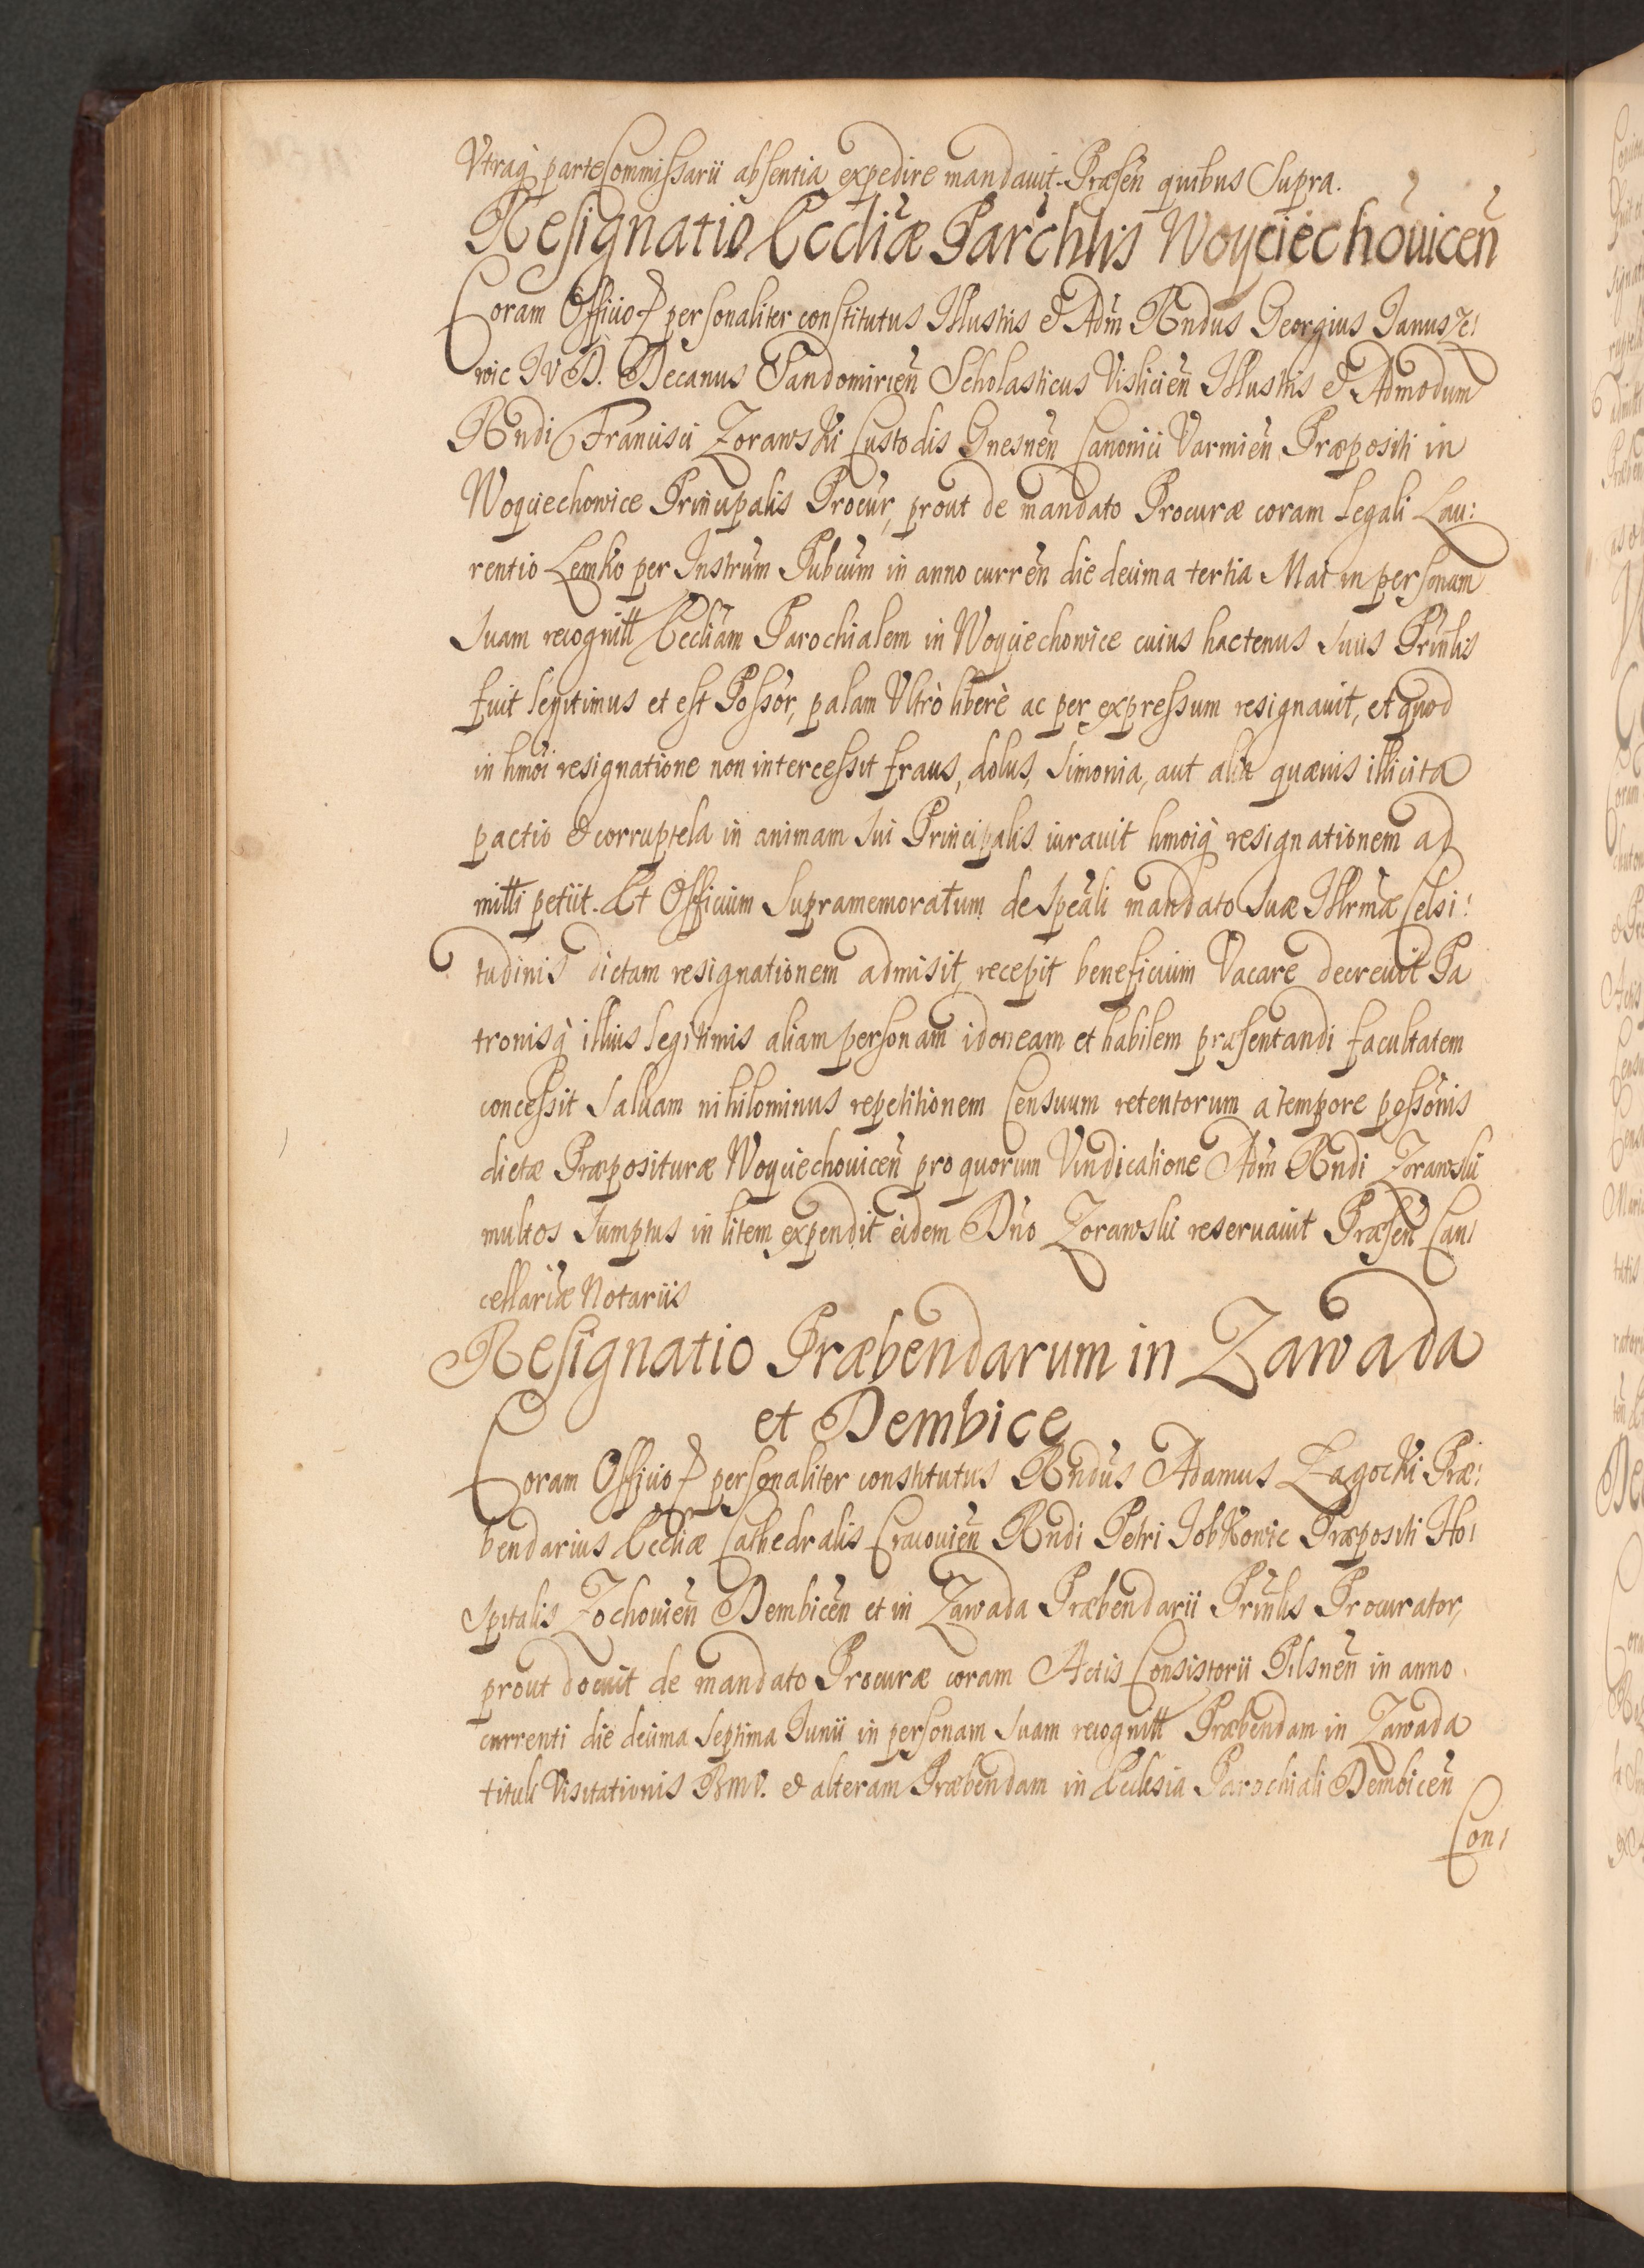 Vtraq̀ parte Commissarii absentia expedire mandauit. Præsen̄ quibus Supra.
Resignatio Eccliæ Parchlis Woyciechouicen̄
Coram Officio personaliter constitutus Illustris & Adm̄ Rndus Georgius Janusze:
wic JVD. Decanus Sandomirien̄ Scholasticus Vislicien̄ Illustris & Admodum
Rndi Francisci Zorawski Custodis Gnesnen̄ Canonici Varmien̄ Præpositi in
Woyciechowice Principalis Procur, prout de mandato Procuræ coram legali Lau:
rentio Lemko per Instrūm Pubcum in anno curren̄ die decima tertia Maÿ in personam
Suam recognitt Eccliam Parochialem in Woyciechowice cuius hactenus suus Prinlis
fuit legitimus et est Possōr, palam Vltrò liberè ac per expressum resignauit, et quod
in hmōi resignatione non intercessit fraus, dolus, Simonia, aut alia quæuis illicita
pactio & corruptela in animam sui Principalis iurauit hmoiq̀ resignationem ad
mitti petiit. Et Officium Supramemoratum de speāli mandato Suæ Illrmæ Celsi:
tudinis dictam resignationem admisit, recepit beneficium Vacare decreuit Pa
tronisq̀ illius legitimis aliam personam idoneam et habilem præsentandi facultatem
concessit Saluam nihilominus repetitionem Censuum retentorum a tempore possōnis
dictæ Præposituræ Woyciechouicen̄ pro quorum Vindicatione Adm̄ Rndi Zorawski
multos Sumptus in litem expendit eidem Dn̄o Zorawski reseruauit Præsen̄ Can:
cellariæ Notariis
Resignatio Præbendarum in Zawada
et Dembice
Coram Officio personaliter constitutus Rndus Adamus Zagocki Præ:
bendarius Eccliæ Cathedralis Cracouien̄ Rndi Petri Jobkowic Præpositi Ho:
spitalis Zochouien̄ Dembicen̄ et in Zawada Præbendarii Prinlis Procurator,
prout docuit de mandato Procuræ coram Actis Consistorii Pilsnen̄ in anno
currenti die decima Septima Junii in personam suam recognitt Præbendam in Zawada
tituli Visitationis BMV. & alteram Præbendam in Ecclesia Parochiali Dembicen̄
Con: